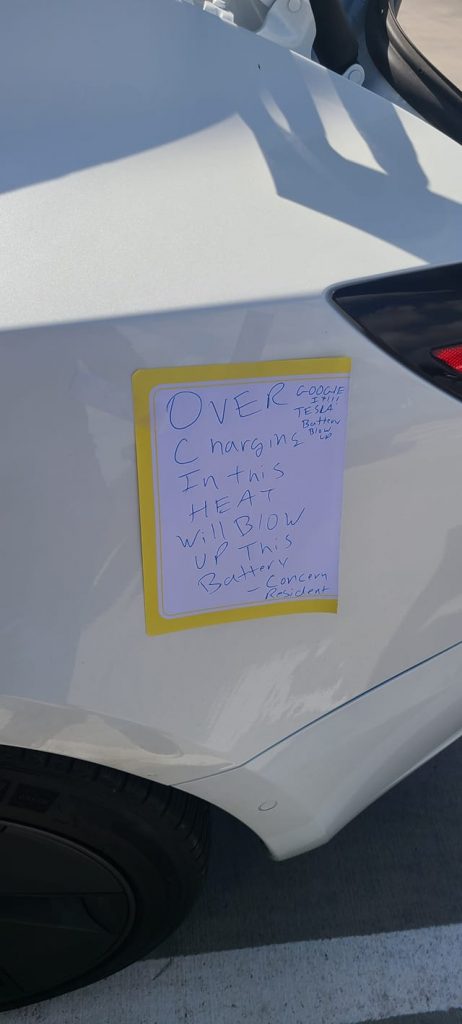 OVER
Charging
In this
HEAT
Will BLOW
UP This
Battery
- Concern
Resident
GOOGLE
IT!!!
TESLA
Battery
Blow
up